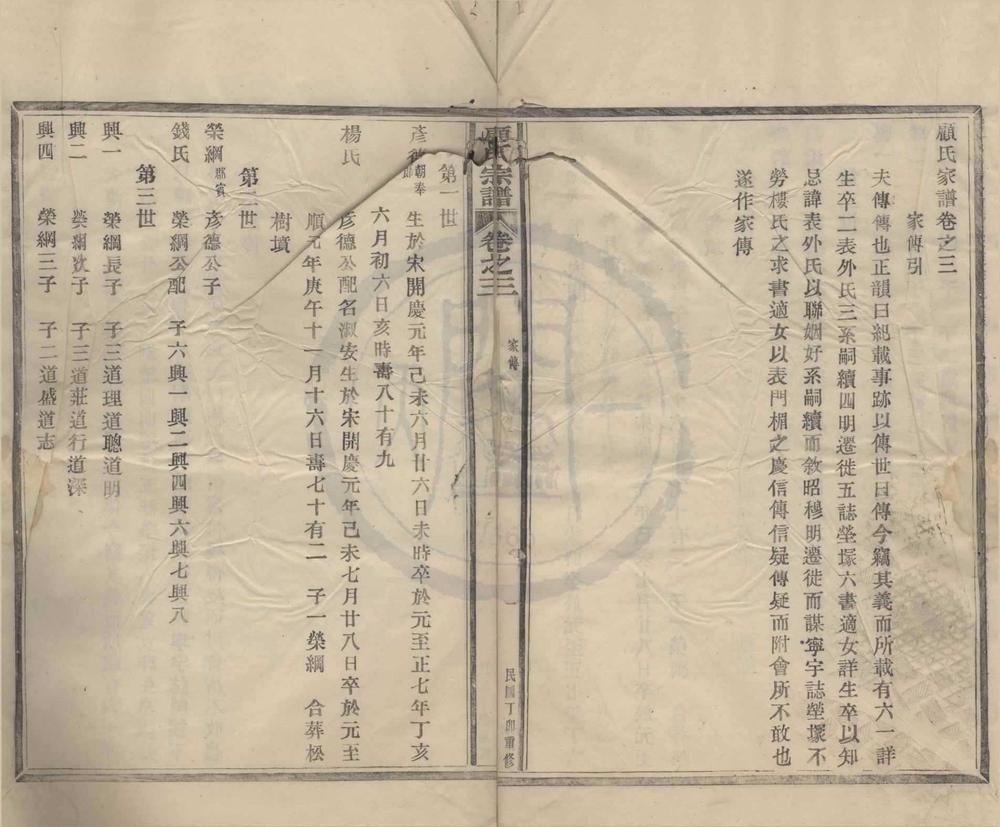 顧氏家譜卷之三
家傳引
夫傳傳也正韻曰紀載事跡以傳世曰傳今竊其義而所載有六一詳
生卒二表外氏三系嗣續四明遷徙五誌塋塚六書適女詳生卒以知
忌諱表外氏以聯姻好系嗣續而敘昭穆明遷徙而謀寧宇誌塋塚不
勞樓氏之求書適女以表門楣之慶信傳信疑傳疑而附會所不敢也
遂作家傳
顧氏宗譜
卷之三
家傳
一
民國丁卯重修
第一世
彥德朝奉郎 生於宋開慶元年己未六月廿六日未時卒於元至正七年丁亥
六月初六日亥時壽八十有九
楊氏 彥德公配名淑安生於宋開慶元年己未七月廿八日卒於元至
順元年庚午十一月十六日壽七十有二 子一榮綱 合葬松
樹墳
第二世
榮綱郡賓 彥德公子
錢氏 榮綱公配 子六興一興二興四興六興七興八
第三世
興一 榮綱長子 子三道理道聰道明
興二 榮綱次子 子三道莊道行道深
興四 榮綱三子 子二道盛道志